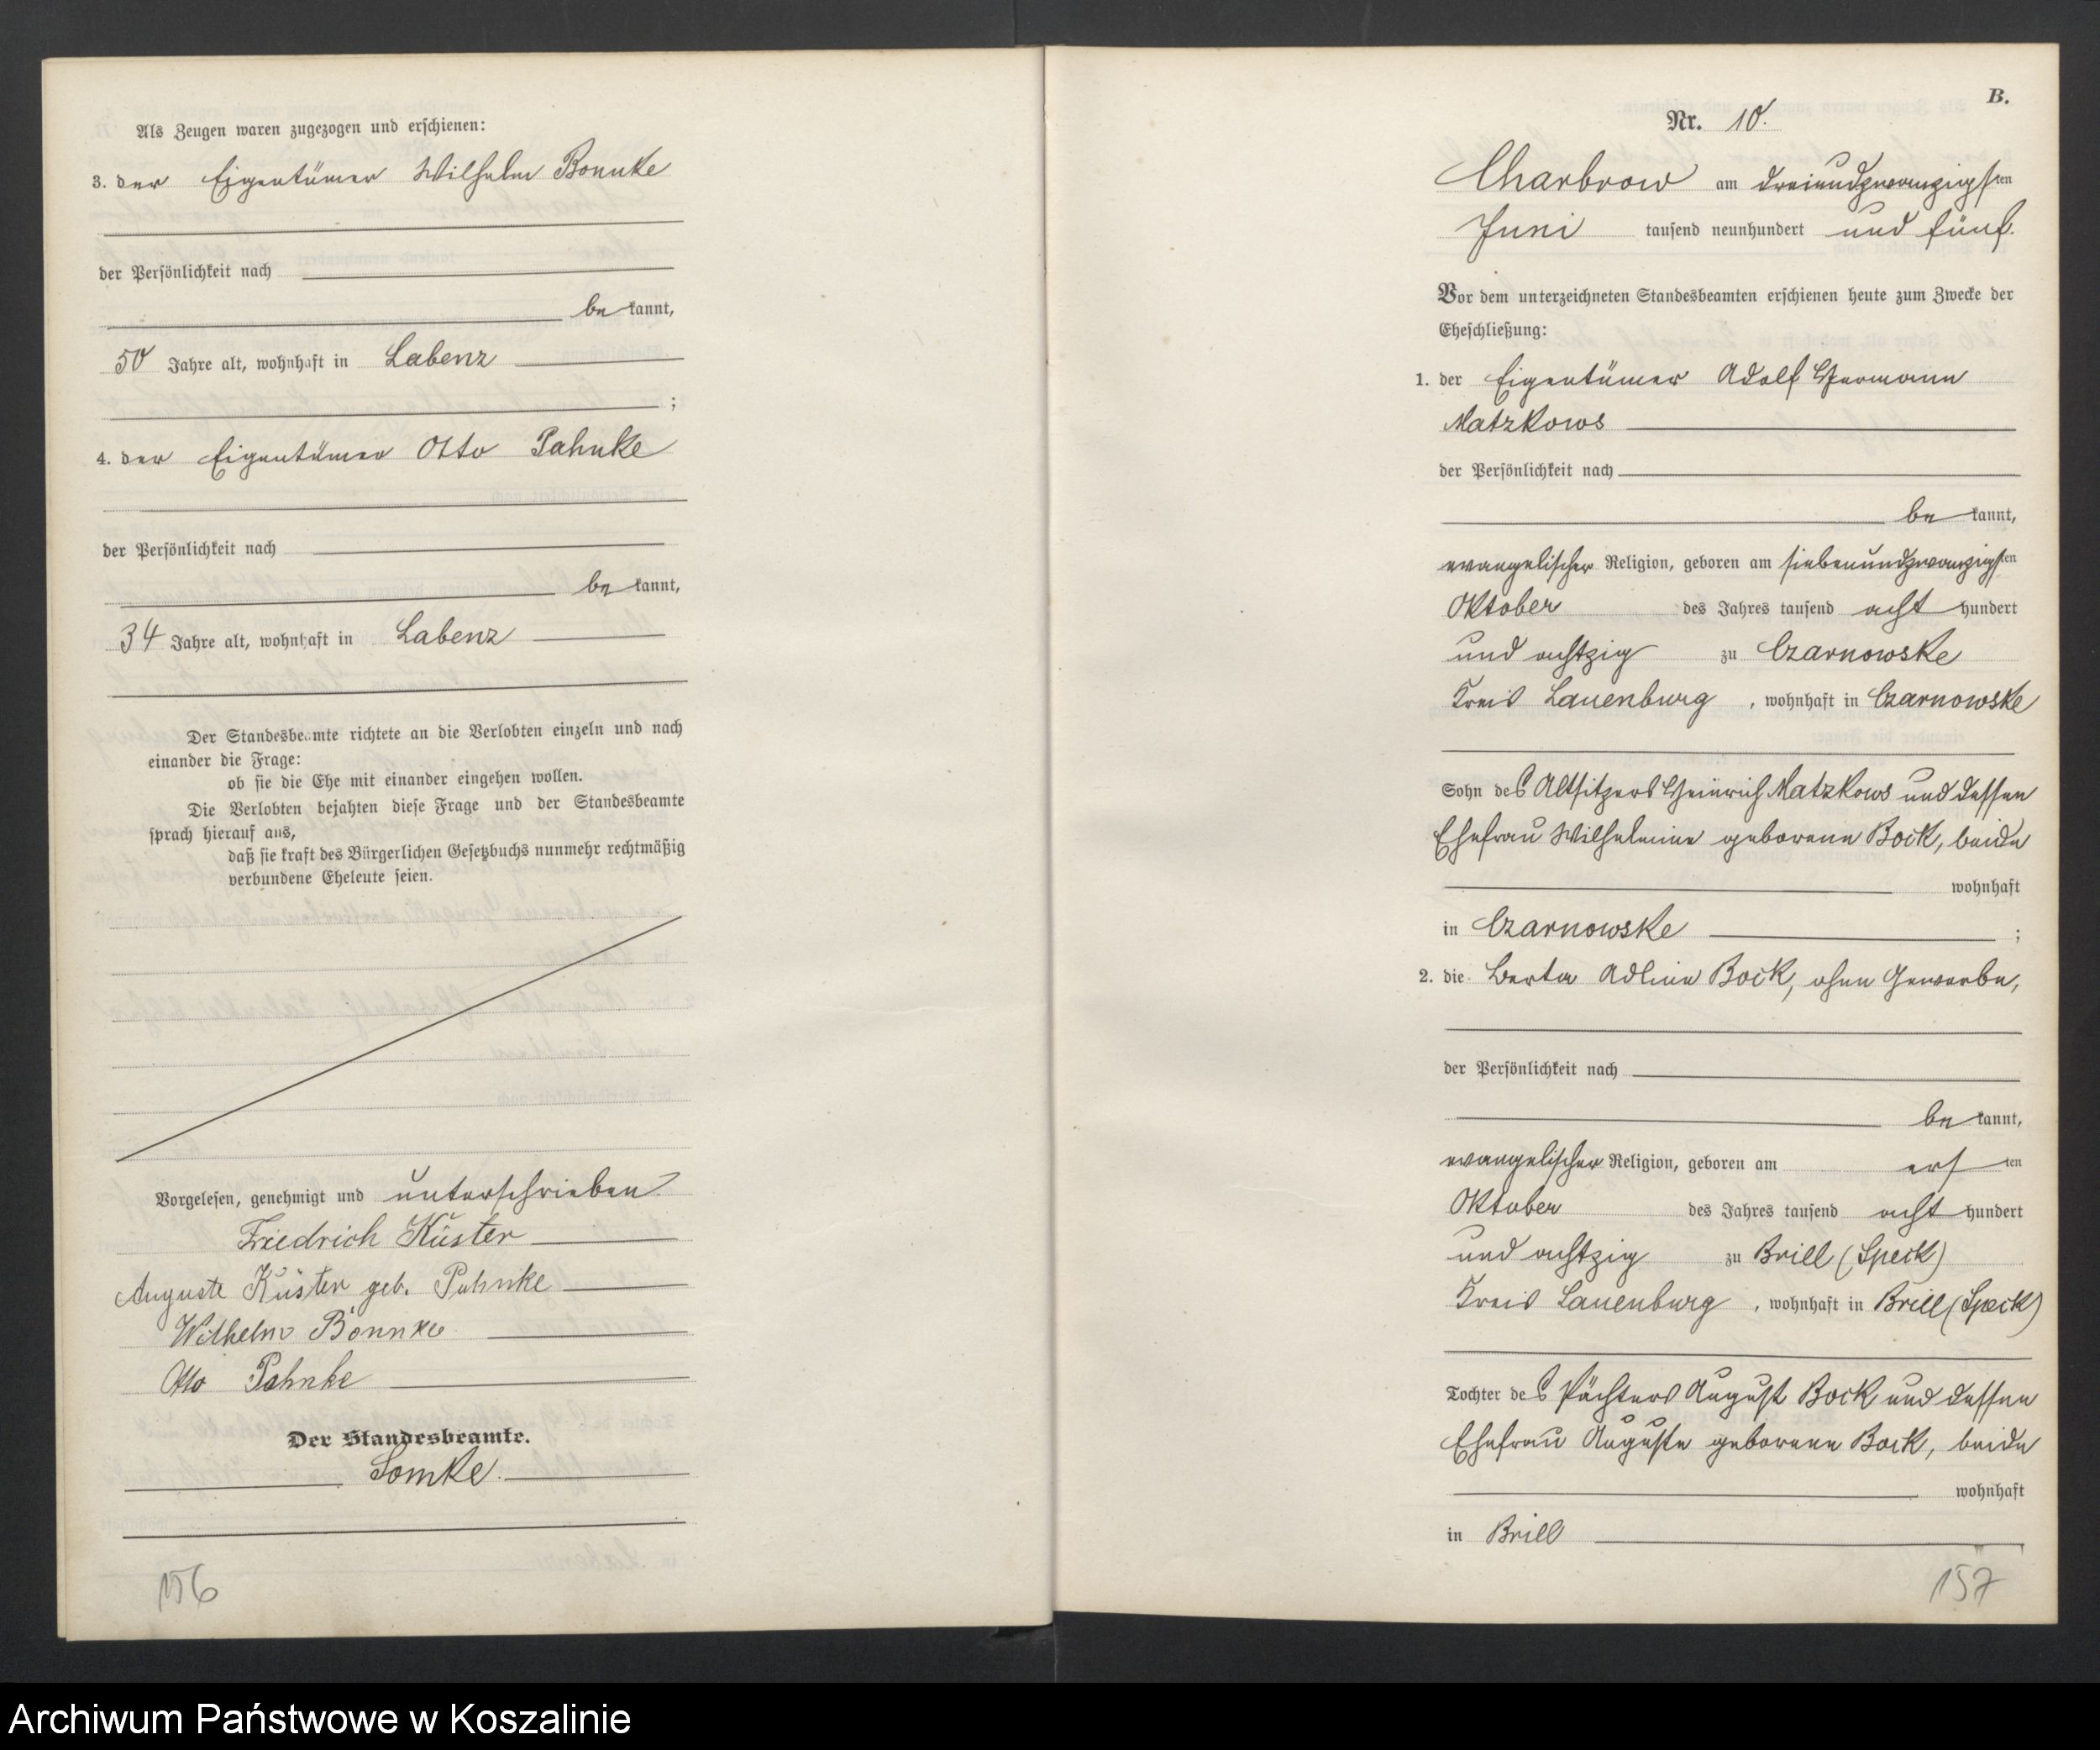 Als Zeugen waren zugezogen und erschienen:
3. der Eigentümer Wilhelm Bonnke
der Persönlichkeit nach
be kannt,
50 Jahre alt, wohnhaft in Labenz
;
4. der Eigentümer Otto Pahnke
der Persönlichkeit nach
be kannt,
34 Jahre alt, wohnhaft in Labenz
Der Standesbeamte richtete an die Verlobten einzeln und nach
einander die Frage:
ob sie die Ehe mit einander eingehen wollen.
Die Verlobten bejahten diese Frage und der Standesbeamte
sprach hierauf aus,
daß sie kraft des Bürgerlichen Gesetzbuchs nunmehr rechtmäßig
verbundene Eheleute seien.
Vorgelesen, genehmigt und unterschrieben
Friedrich Küster
Auguste Küster geb. Pahnke
Wilhelm Bonnke
Otto Pahnke
Der Standesbeamte.
Somke.
156
B.
Nr. 10.
Charbrow am dreiundzwanzigsten
Juni tausend neunhundert und fünf.
Vor dem unterzeichneten Standesbeamten erschienen heute zum Zwecke der
Eheschließung:
1. der Eigentümer Adolf Hermann
Matzkows
der Persönlichkeit nach
be kannt,
evangelischer Religion, geboren am siebenundzwanzigsten
Oktober des Jahres tausend acht hundert
und achtzig zu Czarnowske
Kreis Lauenburg , wohnhaft in Czarnowske
Sohn des Altsitzers Heinrich Matzkows und dessen
Ehefrau Wilhelmine geborene Bock, beide
wohnhaft
in Czarnowske ;
2. die Berta Adline Bock, ohne Gewerbe,
der Persönlichkeit nach
be kannt,
evangelischer Religion, geboren am ersten
Oktober des Jahres tausend acht hundert
und achtzig zu Brill (Speck)
Kreis Lauenburg , wohnhaft in Brill (Speck)
Tochter des Pächters August Bock und dessen
Ehefrau Auguste geborene Bock, beide
wohnhaft
in Brill
157
Archiwum Państwowe w Koszalinie